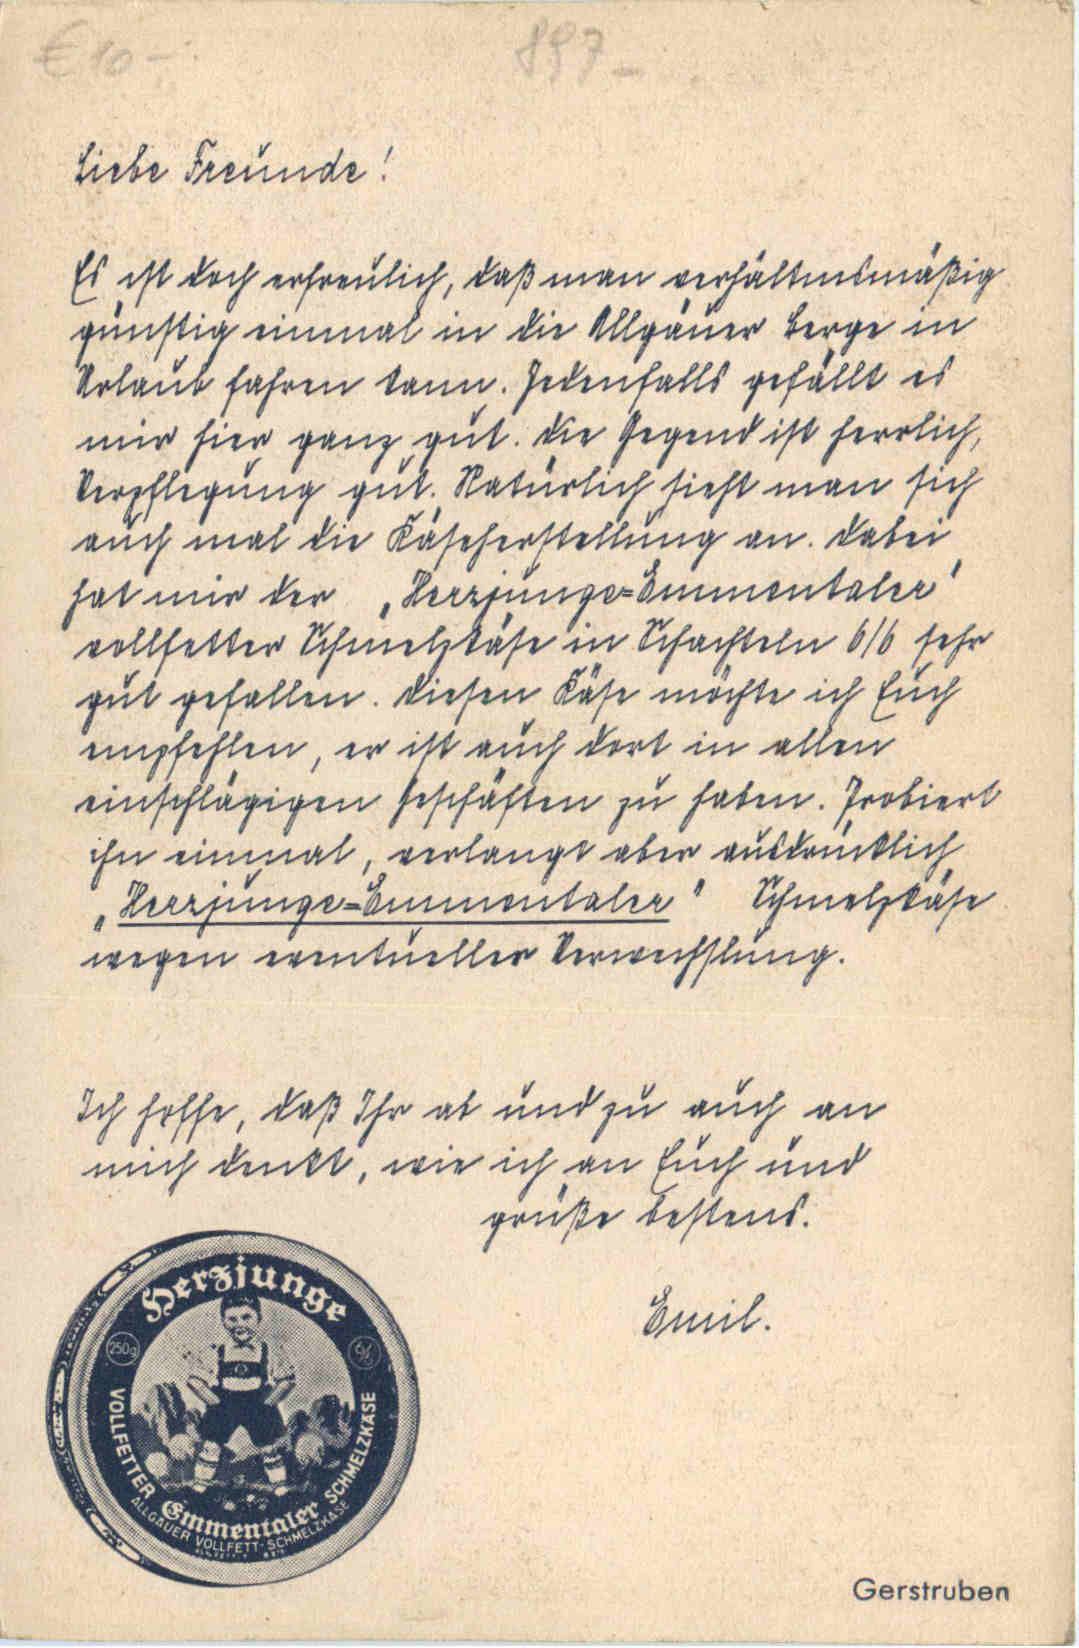 € 10.-
897-
Liebe Freunde!
Es ist doch erfreulich, daß man verhältnismäßig
günstig einmal in die Allgäuer Berge in
Urlaub fahren kann. Jedenfalls gefällt es
mir hier ganz gut. Die Gegend ist herrlich,
Verpflegung gut. Natürlich sieht man sich
auch mal die Käseherstellung an. Dabei
hat mir der „Herzjunge=Emmentaler"
vollfetter Schmelzkäse in Schachteln 6/6 sehr
gut gefallen. Diesen Käse möchte ich Euch
empfehlen, er ist auch dort in allen
einschlägigen Geschäften zu haben. Probiert
ihn einmal, verlangt aber ausdrücklich
„Herzjunge=Emmentaler" Schmelzkäse
wegen eventueller Verwechslung.
Ich hoffe, daß Ihr ab und zu auch an
mich denkt, wie ich an Euch und
grüße bestens.
Emil.
Herzjunge
250g
6/6
VOLLFETTER
Emmentaler
SCHMELZKÄSE
ALLGÄUER VOLLFETT-SCHMELZKÄSE
Gerstruben